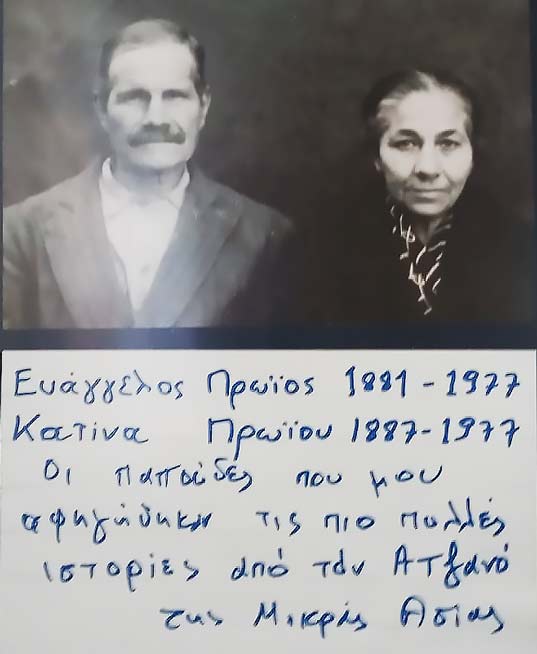 Ευάγγελος Πρωϊος 1881-1977
Κατίνα Πρωϊου 1887-1977
Οι παπούδες που μου
αφηγήθηκαν τις πιο πολλές
ιστορίες από τόν Ατζανό
της Μικράς Ασίας